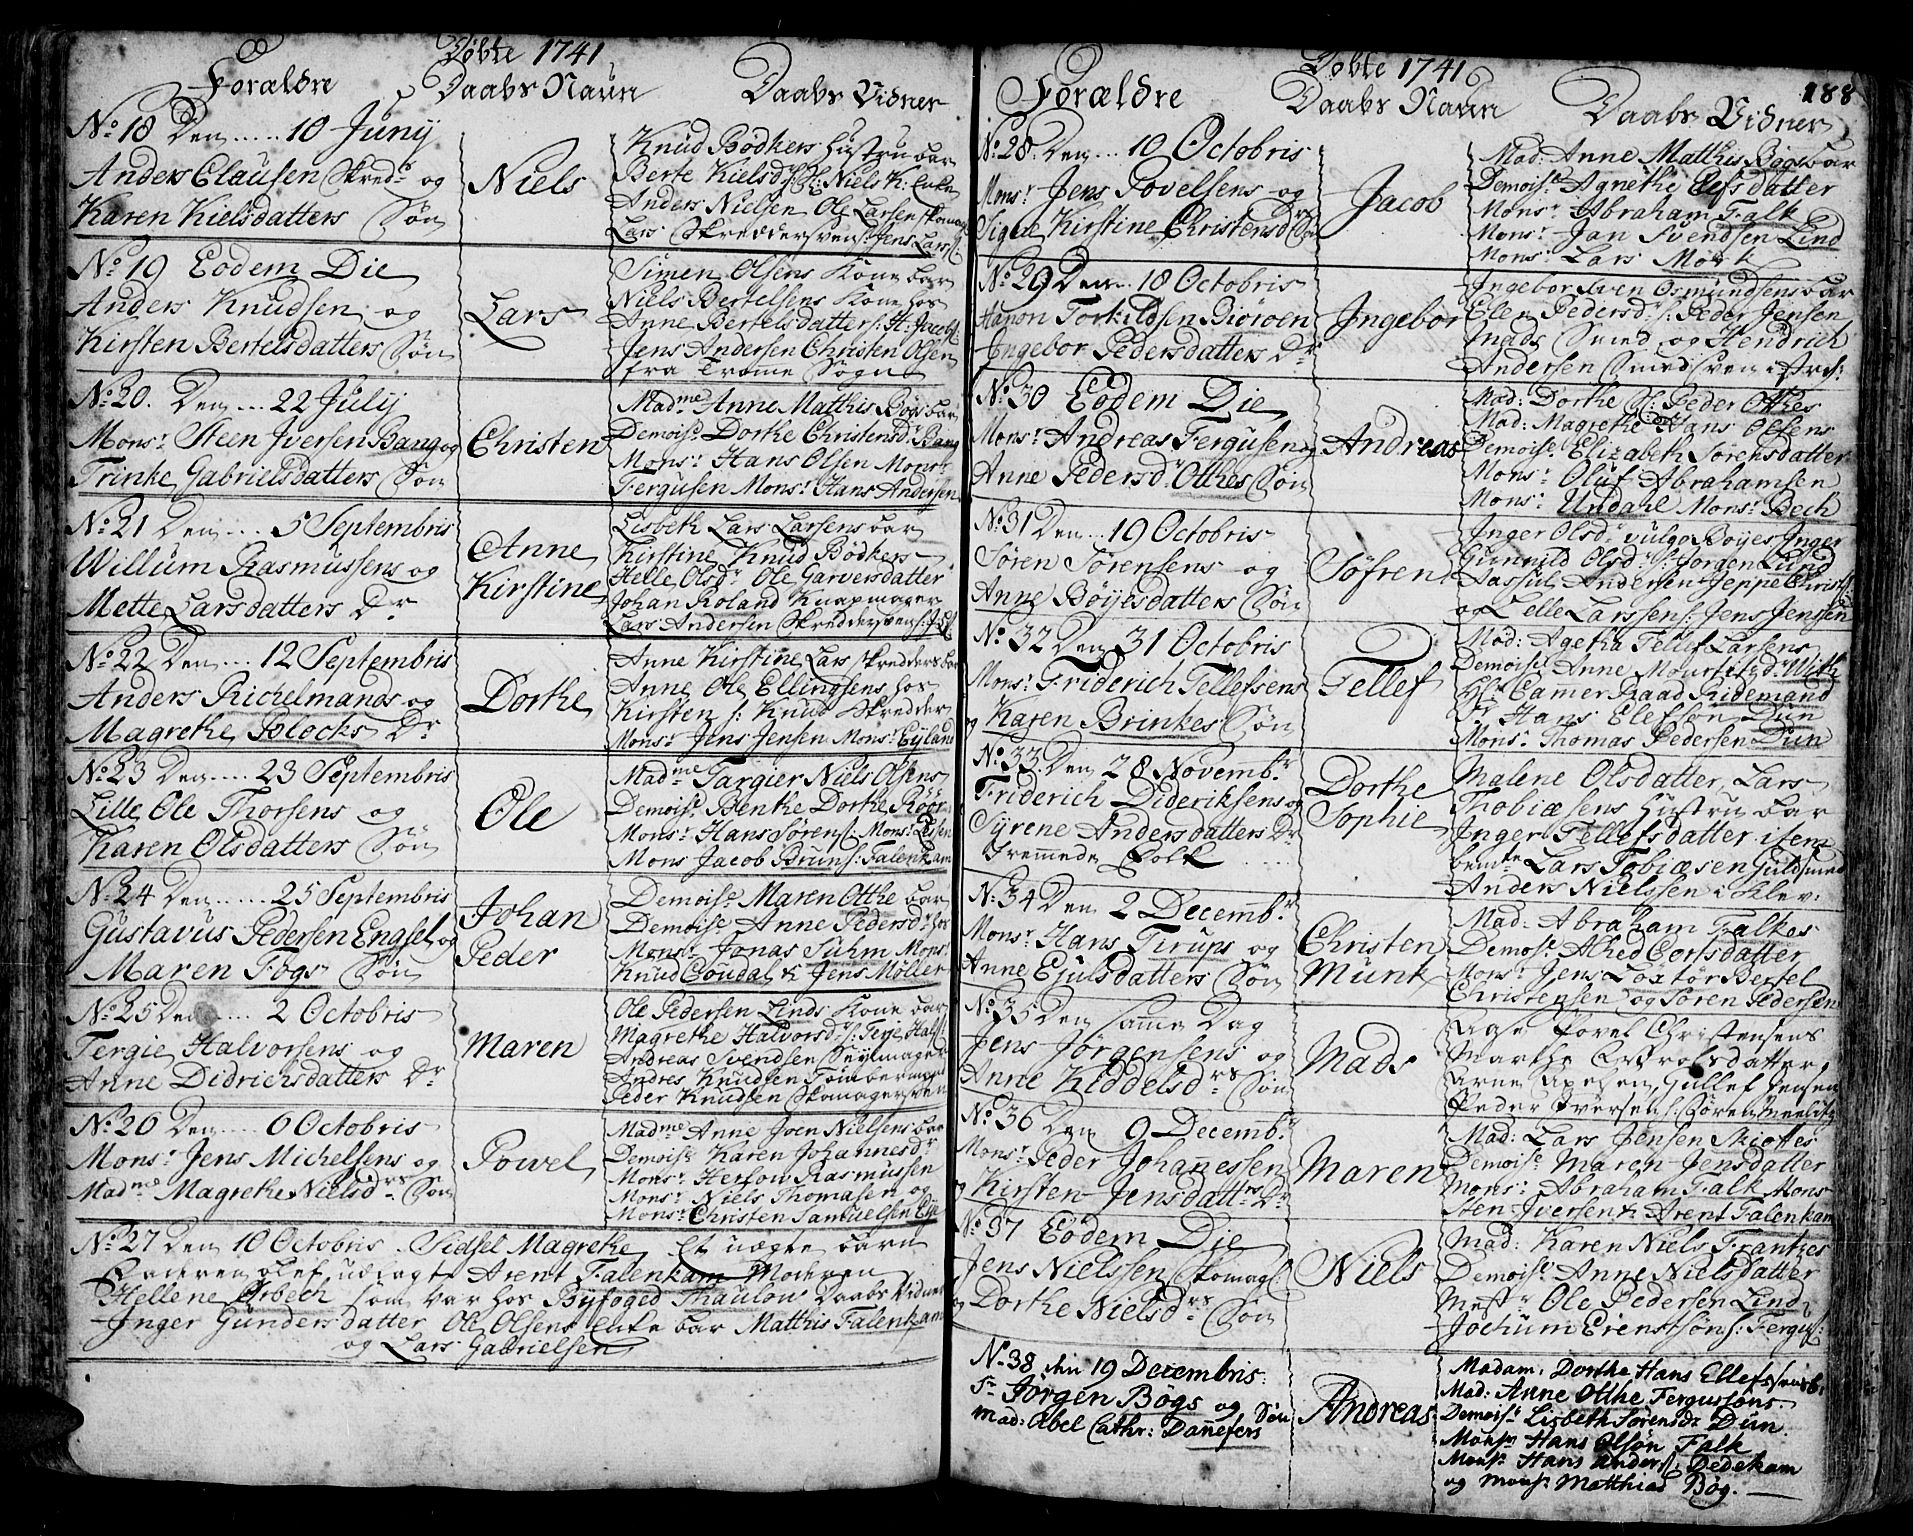 Døbte 1741
Forældre Daabs Naun Daabs Vidner
No 18 Den ..... 10 Junij
Anders Clausen Skredr og
Karen Kielsdatters Søn
Niels
Knud Bødkers Hustru bar
Berte Kielsdr Sl: Niels K: Enke
Anders Nielsen Ole Larsen Skomag
Lars Skreddersvens: Jens Lars
No 19 Eodem Die
Anders Knudsen og
Kirsten Bertelsdatters Søn
Lars
Simen Olsens Kone bar
Niels Bertelsens Kone hos
Anne Bertelsdatter: H: Jacobs
Jens Andersen Christen Olsen
fra Tromøe Sogn
No 20. Den ... 22 Julij
Monsr Steen Iversen Bang og
Trinke Gabrielsdatters Søn
Christen
Madme Anne Matthis Bøgs bar
Demoise Dorthe Christensdr Bang
Monsr Hans Olsen Monsr
Fergusen Monsr Hans Andersen
No 21 Den .... 5 Septembris
Willum Rasmussens og
Mette Larsdatters Dr
Anne
Kirstine
Lisbeth Lars Larsens bar
Kirstine Knud Bødkers
Helle Olsdr Ole Garversdatter
Johan Roland Knapmager
Lars Andersen Skreddersvens:
No 22 Den .... 12 Septembris
Anders Richelmands og
Magrethe Blocks Dr
Dorthe
Anne Kirstine Lars Skredders bar
Anne Ole Ellingsens hos
Kirsten s: Knud Skredder
Monsr Jens Jensen Monsr Eyland
No 23 Den .... 23 Septembris
Lille Ole Thorsens og
Karen Olsdatters Søn
Ole
Madme Targier Niels Olsens
Demoise Benthe Dorthe Röör
Monsr Hans Sørens Monsr
Mons Jacob Bruns: Falenkam
No 24 Den ...... 25 Septembris
Gustavus Pedersen Engsel og
Maren Fogs Søn
Johan
Peder
Demoise Maren Otthe bar
Demoise Anne Pedersdr hos
Monsr Jonas Suhm Mons
Knud Coudal & Jens Møller
No 25 Den .... 2 Octobris
Tergie Halvorsens og
Anne Didrichsdatters Dr
Maren
Ole Pedersen Linds Kone bar
Magrethe Halvorsd s: Terje Hals
Andreas Svendsen Seylmager
Andres Knudsen Tømbermager
Peder Knudsen Skomagersvend
No 26 Den .... 6 Octobris
Monsr Jens Michelsens og
Madme Magrethe Nielsdrs Søn
Powel
Madme Anne Joen Nielsens bar
Demoise Karen Johannesdr
Monsr Herlow Rasmussen
Monsr Niels Thomasen og
Monsr Christen Samuelsen
No 27 Den 10 Octobris. Sidsel Magrethe Et uægte barn
Faderen blef udlagt Arent Falenkam Moderen
Hellene Orbech som var hos Byfoged Thaulow Daabs Vidner
Inger Gundersdatter Ole Olsens Enke bar Matthis Falenkam
og Lars Gabrielsen
188
Døbte 1741
Forældre Daabs Naun Daabs Vidner
No 28. Den ... 10 Octobris
Monsr Jens Povelsens og
Signe Kirstine Christensdrs Søn
Jacob
Mad: Anne Matthis Bøgs bar
Demoise Agnethe Elefsdatter
Monsr Abraham Falk
Monsr Jan Svendsen Lind
Monsr Lars Mørk
No 29 Den ... 18 Octobris
Aanon Torkildsen Biøroen
Ingebor Pedersdatters Dr
Ingebor
Ingebor Sven Osmundsens bar
Elen Pedersdr s: Peder Jensen
Mads Smed og Hendrich
Andersen Smedsven i
No 30 Eodem Die
Monsr Andreas Fergusen og
Anne Pedersdr Otthes Søn
Andreas
Mad: Dorthe Sl: Peder Otthes
Mad: Magrethe Hans Olsens
Demoise Elizabeth Sørensdatter
Monsr Oluf Abrahamsen
Monsr Undahl Monsr Bech
No 31 Den ... 19 Octobris
Søren Sørensens og
Anne Bøyesdatters Søn
Søfren
Inger Olsdr vulgo Bøyes Inger
Gunnild Olsdr s: Jørgen Lund
Tassul Andersen Jeppe Christ
og Lelle Larssen s: Jens Jenssen
No 32 Den 31 Octobris
Monsr Friderich Tellefsens
og Karen Brinkes Søn
Tellef
Mad: Agetha Tellef Larsens
Demoise Anne Mouritzdr With
Hr Camer Raad Ridemand
Sr Hans Elefsøn Dun
Monsr Thomas Pedersen Dun
No 33. Den 28 Novembr
Friderich Dideriksens og
Syrene Andersdatters Dr
Fremmede Folk
Dorthe
Sophie
Malene Olsdatter, Lars
Thobiæsens Hustru bar
Inger Tellefsdatter item
bemte Lars Tobiæsen Guldsmed
Anders Nielssen i Klev:
No 34 Den 2 Decembr
Monsr Hans Tirups og
Anne Ejulsdatters Søn
Christen
Munk
Mad: Abraham Falkes
Demoise Alhed Corfsdatter
Monsr Jens Loxtør Bertel
Christensen og Søren Pedersen
No 35 Den samme Dag
Jens Jørgensens og
Anne Kiddelsdrs Søn
Mads
Aase Povel Christensens
Marthe datter
Arne Apelsen, Gullef Jensen
Peder Iversen s: Søren
No 36 Den 9 Decembr
Monsr Peder Johannessen
og Kirsten Jensdattrs Dr
Maren
Mad: Lars Jensen Skiøttes
Demoise Maren Jensdatter
Monsr Abraham Falk Mons
Sten Iversen & Arent Falenkam
No 37 Eodem Die
Jens Nielssen Skomag
og Dorthe Nielsdrs Søn
Niels
Mad: Karen Niels Frantzes
Demoise Anne Nielsdatter
Mestr Ole Pedersen Lind
Jochum Erenstsøn s: Fergus:
No 38 den 19 Decembris.
Sr Jørgen Bøgs og
Mad: Abel Cathr: Dannefers Søn
Andreas
Madam: Dorthe Hans Ellefssøns b:
Mad: Anne Otthe Fergussons
Demoise Lisbeth Sørensdr Dun
Monsr Hans Olsøn Falk
Monsr Hans Anders Dedekam
og Monsr Matthias Bøg.